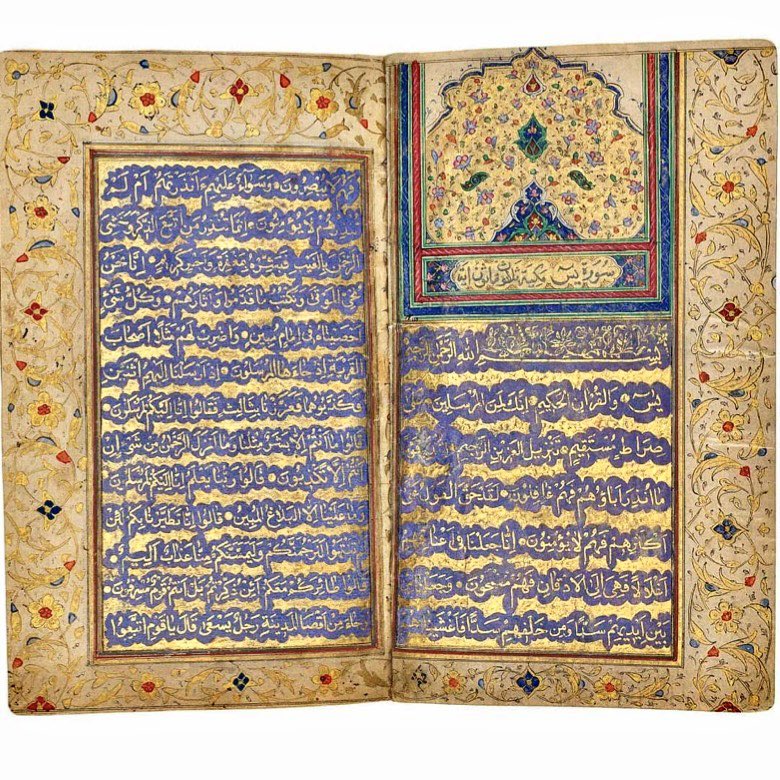 سورة يس مكية
بسم الله الرحمن الرحيم
يس والقرآن الحكيم انك لمن المرسلين
صراط مستقيم تنزيل العزيز الرحيم
ما انذر اباؤهم فهم غافلون لقد حق القول على
اكثرهم فهم لا يؤمنون انا جعلنا فى اعنا
اغلالا فهى الى الاذقان فهم مقمحون وجعلنا
بين ايديهم سدا ومن خلفهم سدا فاغشينا
يبصرون وسواء عليهم ءانذرتهم ام لم
تنذرهم لا يؤمنون انما تنذر من اتبع الذكر وخشى
الرحمن بالغيب فبشره بمغفرة واجر كريم انا نحن
نحى الموتى ونكتب ما قدموا واثارهم وكل شئ
احصيناه فى امام مبين واضرب لهم مثلا اصحاب
القرية اذ جاءها المرسلون اذ ارسلنا اليهم اثنين
فكذبوهما فعززنا بثالث فقالوا انا اليكم مرسلون
قالوا ما انتم الا بشر مثلنا وما انزل الرحمن من شئ ان
انتم الا تكذبون قالوا ربنا يعلم انا اليكم لمرسلون
وما علينا الا البلاغ المبين قالوا انا تطيرنا بكم لئن
لم تنتهوا لنرجمنكم وليمسنكم منا عذاب اليم
قالوا طائركم معكم ائن ذكرتم بل انتم قوم مسرفون
وجاء من اقصا المدينة رجل يسعى قال يا قوم اتبعوا